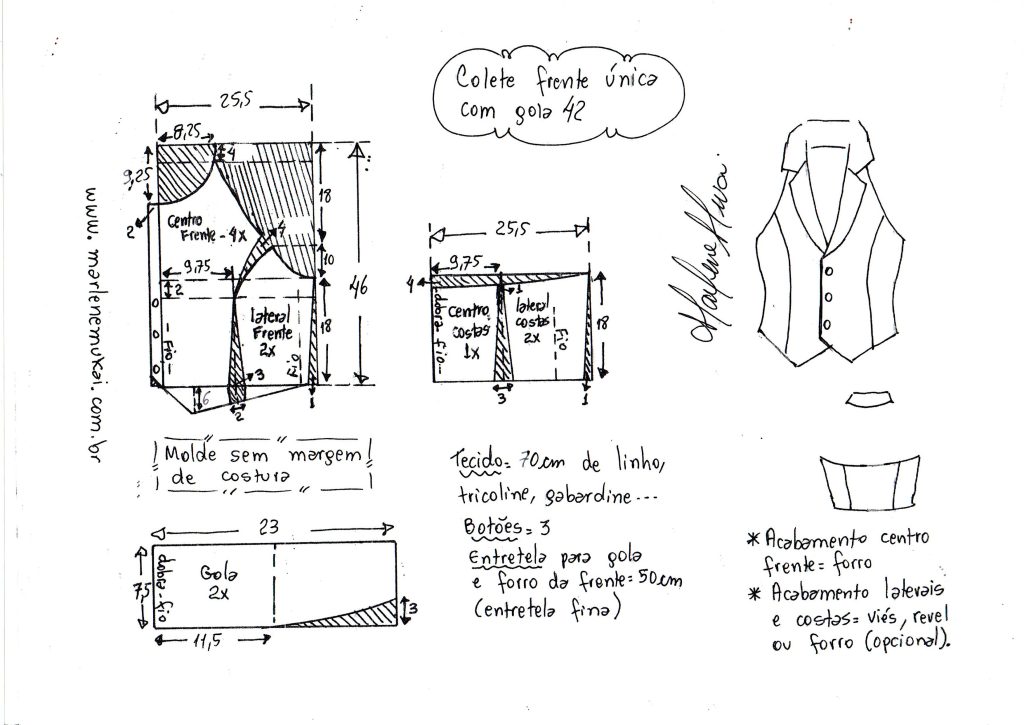 Colete frente única
com gola 42
25,5
8,25
4
9,25
2
18
Centro
Frente - 4x
4
10
9,75
2
46
lateral
Frente
2x
18
Fio
Fio
3
6
2
1
25,5
9,75
4
1
dobra fio
Centro
costas
1x
lateral
costas
2x
Fio
18
3
1
www.marlenemukai.com.br
Marlene Mukai
Molde sem margem
de costura
23
7,5
dobra-fio
Gola
2x
3
11,5
Tecido = 70cm de linho,
tricoline, gabardine...
Botões = 3
Entretela para gola
e forro da frente = 50cm
(entretela fina)
* Acabamento centro
frente = forro
* Acabamento laterais
e costas = viés, revel
ou forro (opcional).